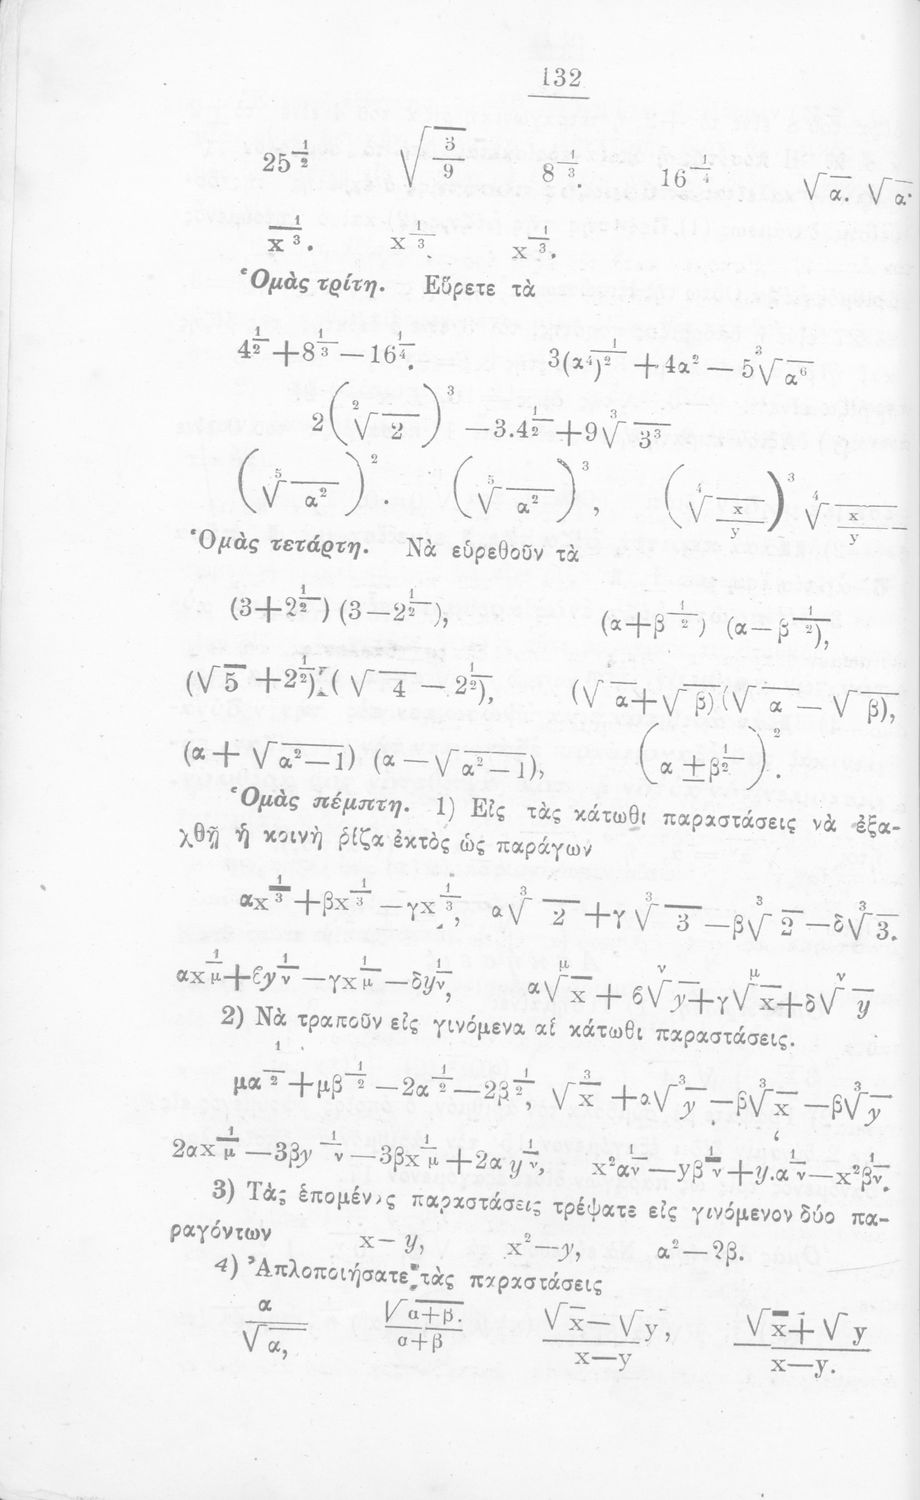 132
25^{-1/2} √(3/9) 8^{-1/3}. 16^{-1/4} √α. √α.
x^{1/3}. x^{1/3}. x^{1/3}.
Ὁμὰς τρίτη. Εὕρετε τὰ
4^{1/2}+8^{1/3}—16^{1/4}. 3(α⁴)^{1/2}+4α²—5∛α⁶
2(²√2)³—3.4^{1/2}+9∛3³
(⁵√α²)². (⁵√α²)³, (⁴√(x/y))³ ⁴√(x/y)
Ὁμὰς τετάρτη. Νὰ εὑρεθοῦν τὰ
(3+2^{1/2}) (3—2^{1/2}), (α+β^{1/2}) (α—β^{1/2}),
(√5+2^{1/2}).(√4—2^{1/2}), (√α+√β) (√α—√β),
(α+√α²—1) (α—√α²—1), (α±β^{1/2})².
Ὁμὰς πέμπτη. 1) Εἰς τὰς κάτωθι παραστάσεις νὰ ἐξα-
χθῇ ἡ κοινὴ ῥίζα ἐκτὸς ὡς παράγων
αx^{1/3}+βx^{1/3}—γx^{1/3}, α∛2+γ∛3—β∛2—δ∛3.
αx^{1/μ}+ϐy^{1/ν}—γx^{1/μ}—δy^{1/ν}, α^μ√x+ϐ^ν√y+γ^μ√x+δ^ν√y
2) Νὰ τραποῦν εἰς γινόμενα αἱ κάτωθι παραστάσεις.
μα^{1/2}+μβ^{1/2}—2α^{1/2}—2β^{1/2}, ∛x+α∛y—β∛x—β∛y
2αx^{1/μ}—3βy^{1/ν}—3βx^{1/μ}+2αy^{1/ν}, x²α^{1/ν}—yβ^{1/ν}+y.α^{1/ν}—x²β^{1/ν}.
3) Τὰς ἑπομένας παραστάσεις τρέψατε εἰς γινόμενον δύο πα-
ραγόντων x—y, x²—y, α²—2β.
4) Ἁπλοποιήσατε τὰς παραστάσεις
α/√α, √(α+β)/(α+β) (√x—√y)/(x—y), (√x+√y)/(x—y).